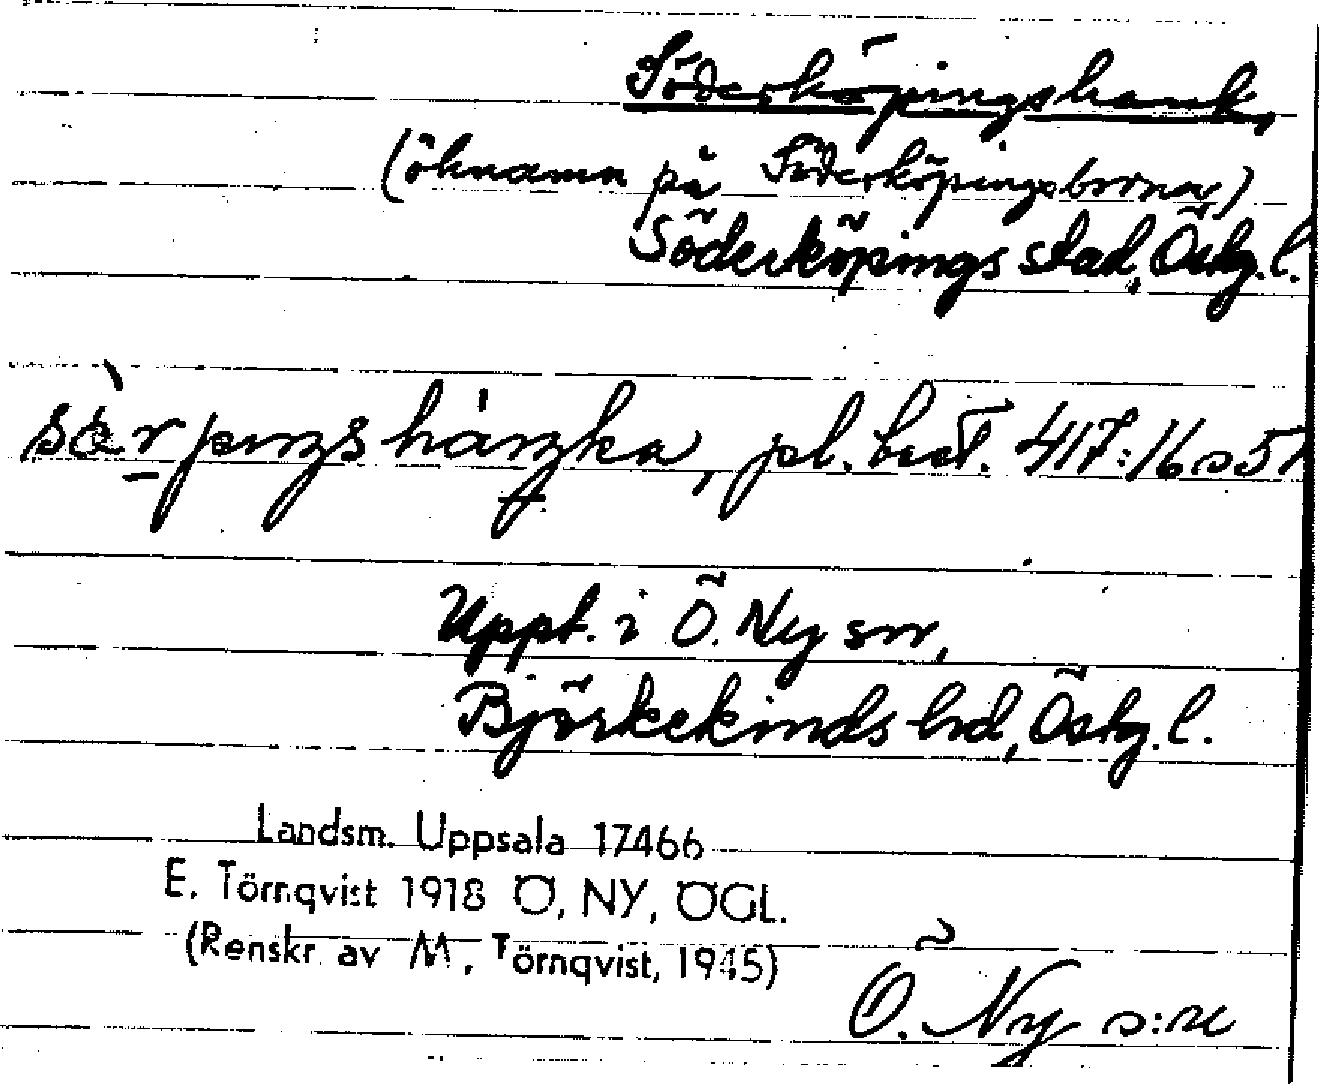 Söderköpingshank,
(öknamn på Söderköpingsborna)
Söderköpings stad, Östg.l.
pl. best. 417:16 o 57
Uppt. i Ö. Ny sn,
Björkekinds hd, Östg.l.
Landsm. Uppsala 17466
E. Törnqvist 1918 Ö, NY, ÖGL.
(Renskr. av M. Törnqvist, 1945)
Ö. Ny s:n